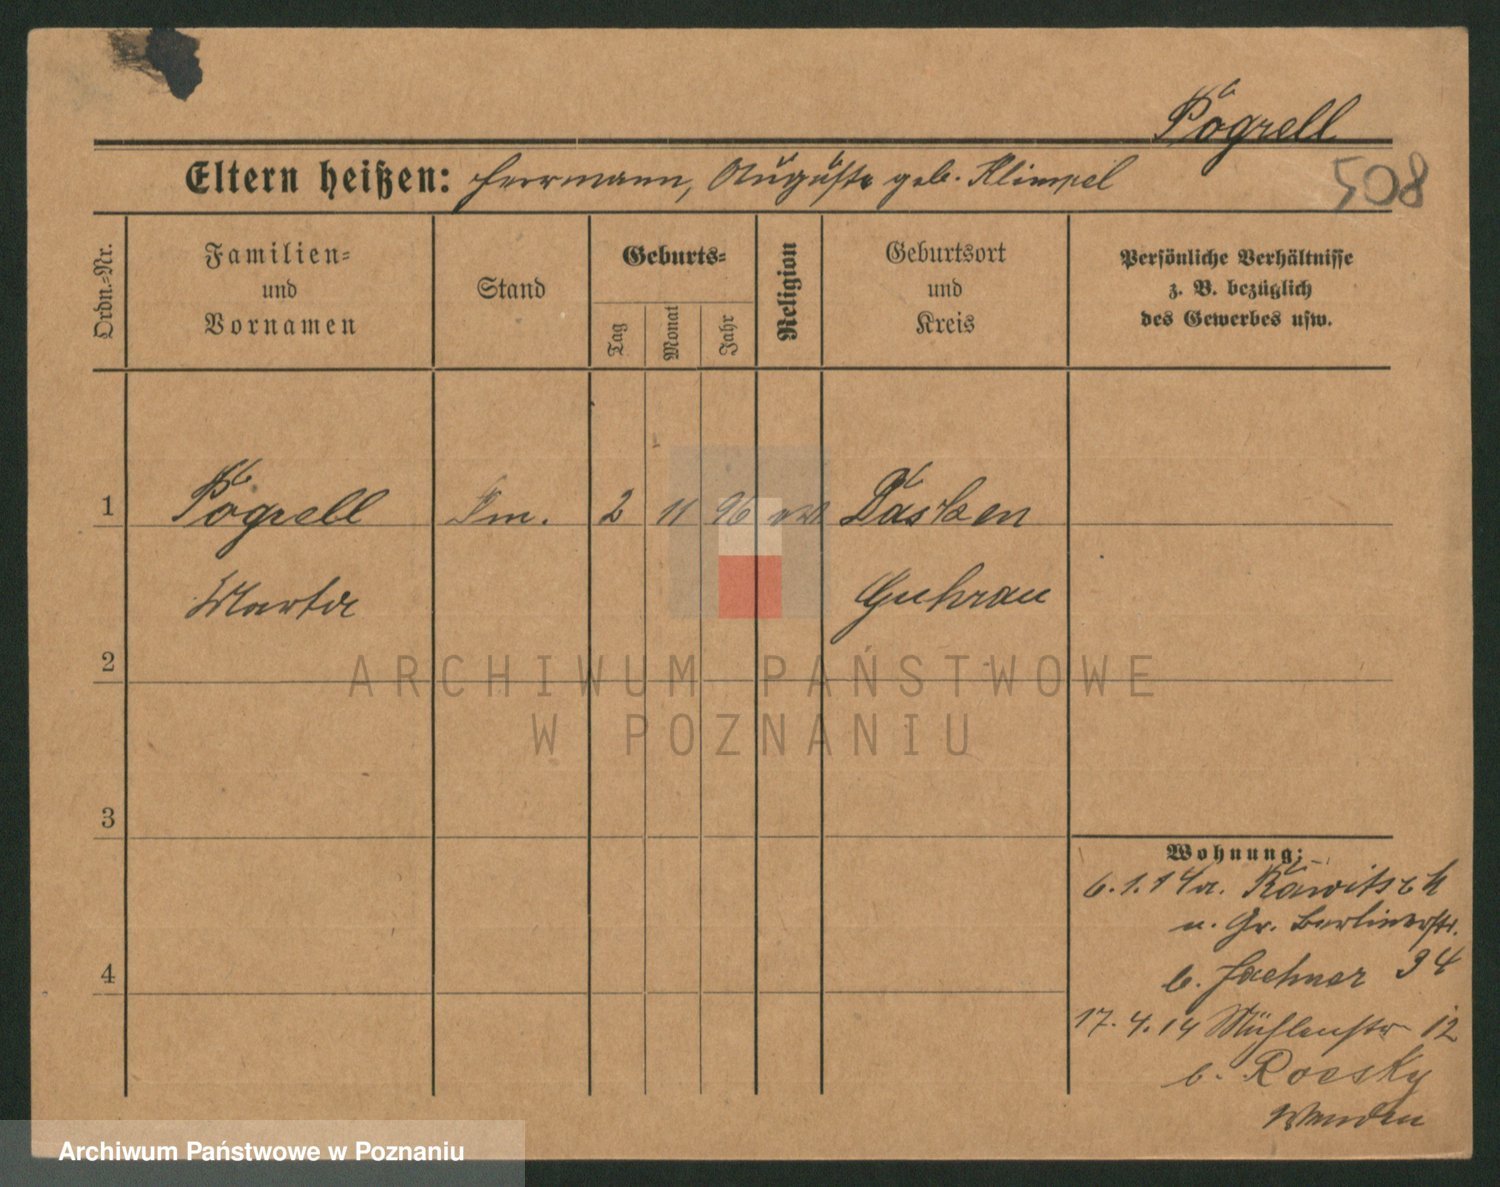 Pogrell
508
Eltern heißen: Herrmann, Auguste geb. Klimpel
Ordn.-Nr.
Familien-
und
Vornamen
Stand
Geburts-
Tag
Monat
Jahr
Religion
Geburtsort
und
Kreis
Persönliche Verhältnisse
z. B. bezüglich
des Gewerbes usw.
1
Pogrell
2 11 96
Martha
Guhrau
2
3
4
Wohnung:
6.1.14 a. Rawitsch
n. Gr. Berlinerstr.
b. Jaehner 34
17.4.14 Mühlenstr 12
b. Roesky
ARCHIWUM PAŃSTWOWE
W POZNANIU
Archiwum Państwowe w Poznaniu